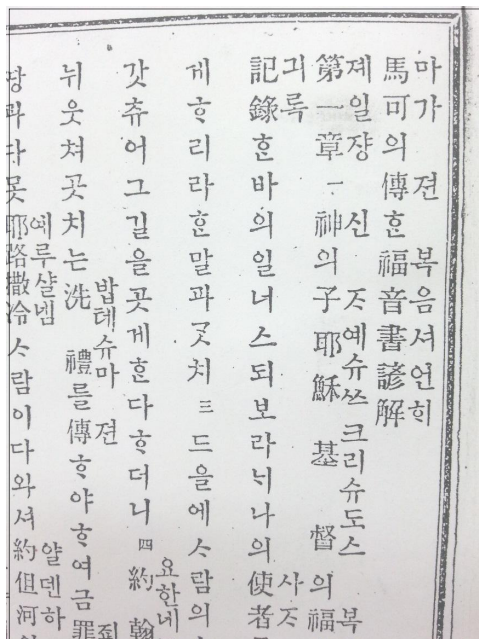 마가 젼 복음셔언ᄒᆡ
馬可의傳ᄒᆞᆫ福音書諺解
졔일쟝 신 ᄌᆞ예슈쓰크리슈도스 복
第一章 一 神의子耶穌基督의福
긔록 ᄉᆞᄌᆞ
記錄ᄒᆞᆫ바의일너스되보라ᄂᆡ나의使者
게ᄒᆞ리라ᄒᆞᆫ말과ᄀᆞᆺ치 三 드을에ᄉᆞ람의
요한네
갓츄어그길을곳게ᄒᆞᆫ다ᄒᆞ더니 四 約翰
밥테슈마 젼 죄
뉘웃쳐곳치는洗禮를傳ᄒᆞ야ᄒᆞ여금罪
예루샬넴 얄덴하
과다못耶路撒冷ᄉᆞ람이다와셔約但河